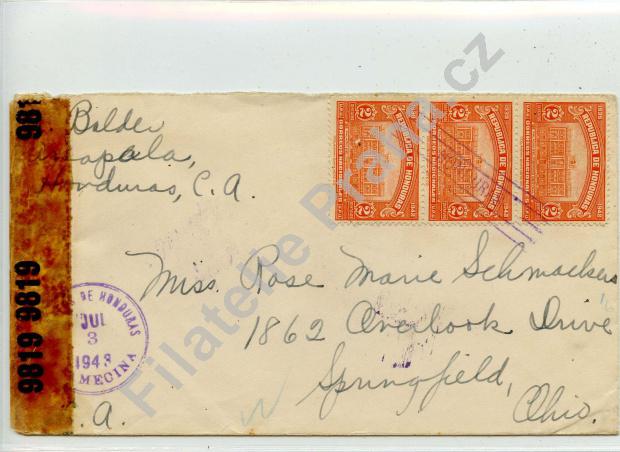 Balder
Honduras, C. A.
REPUBLICA DE HONDURAS
2
REPUBLICA DE HONDURAS
2
REPUBLICA DE HONDURAS
2
Miss. Rose Marie Schmackers
1862 Overlook Drive
Springfield,
Ohio.
DE HONDURAS
JUL
3
1943
. A.
9819 9819 981
Filatelie Praha.cz